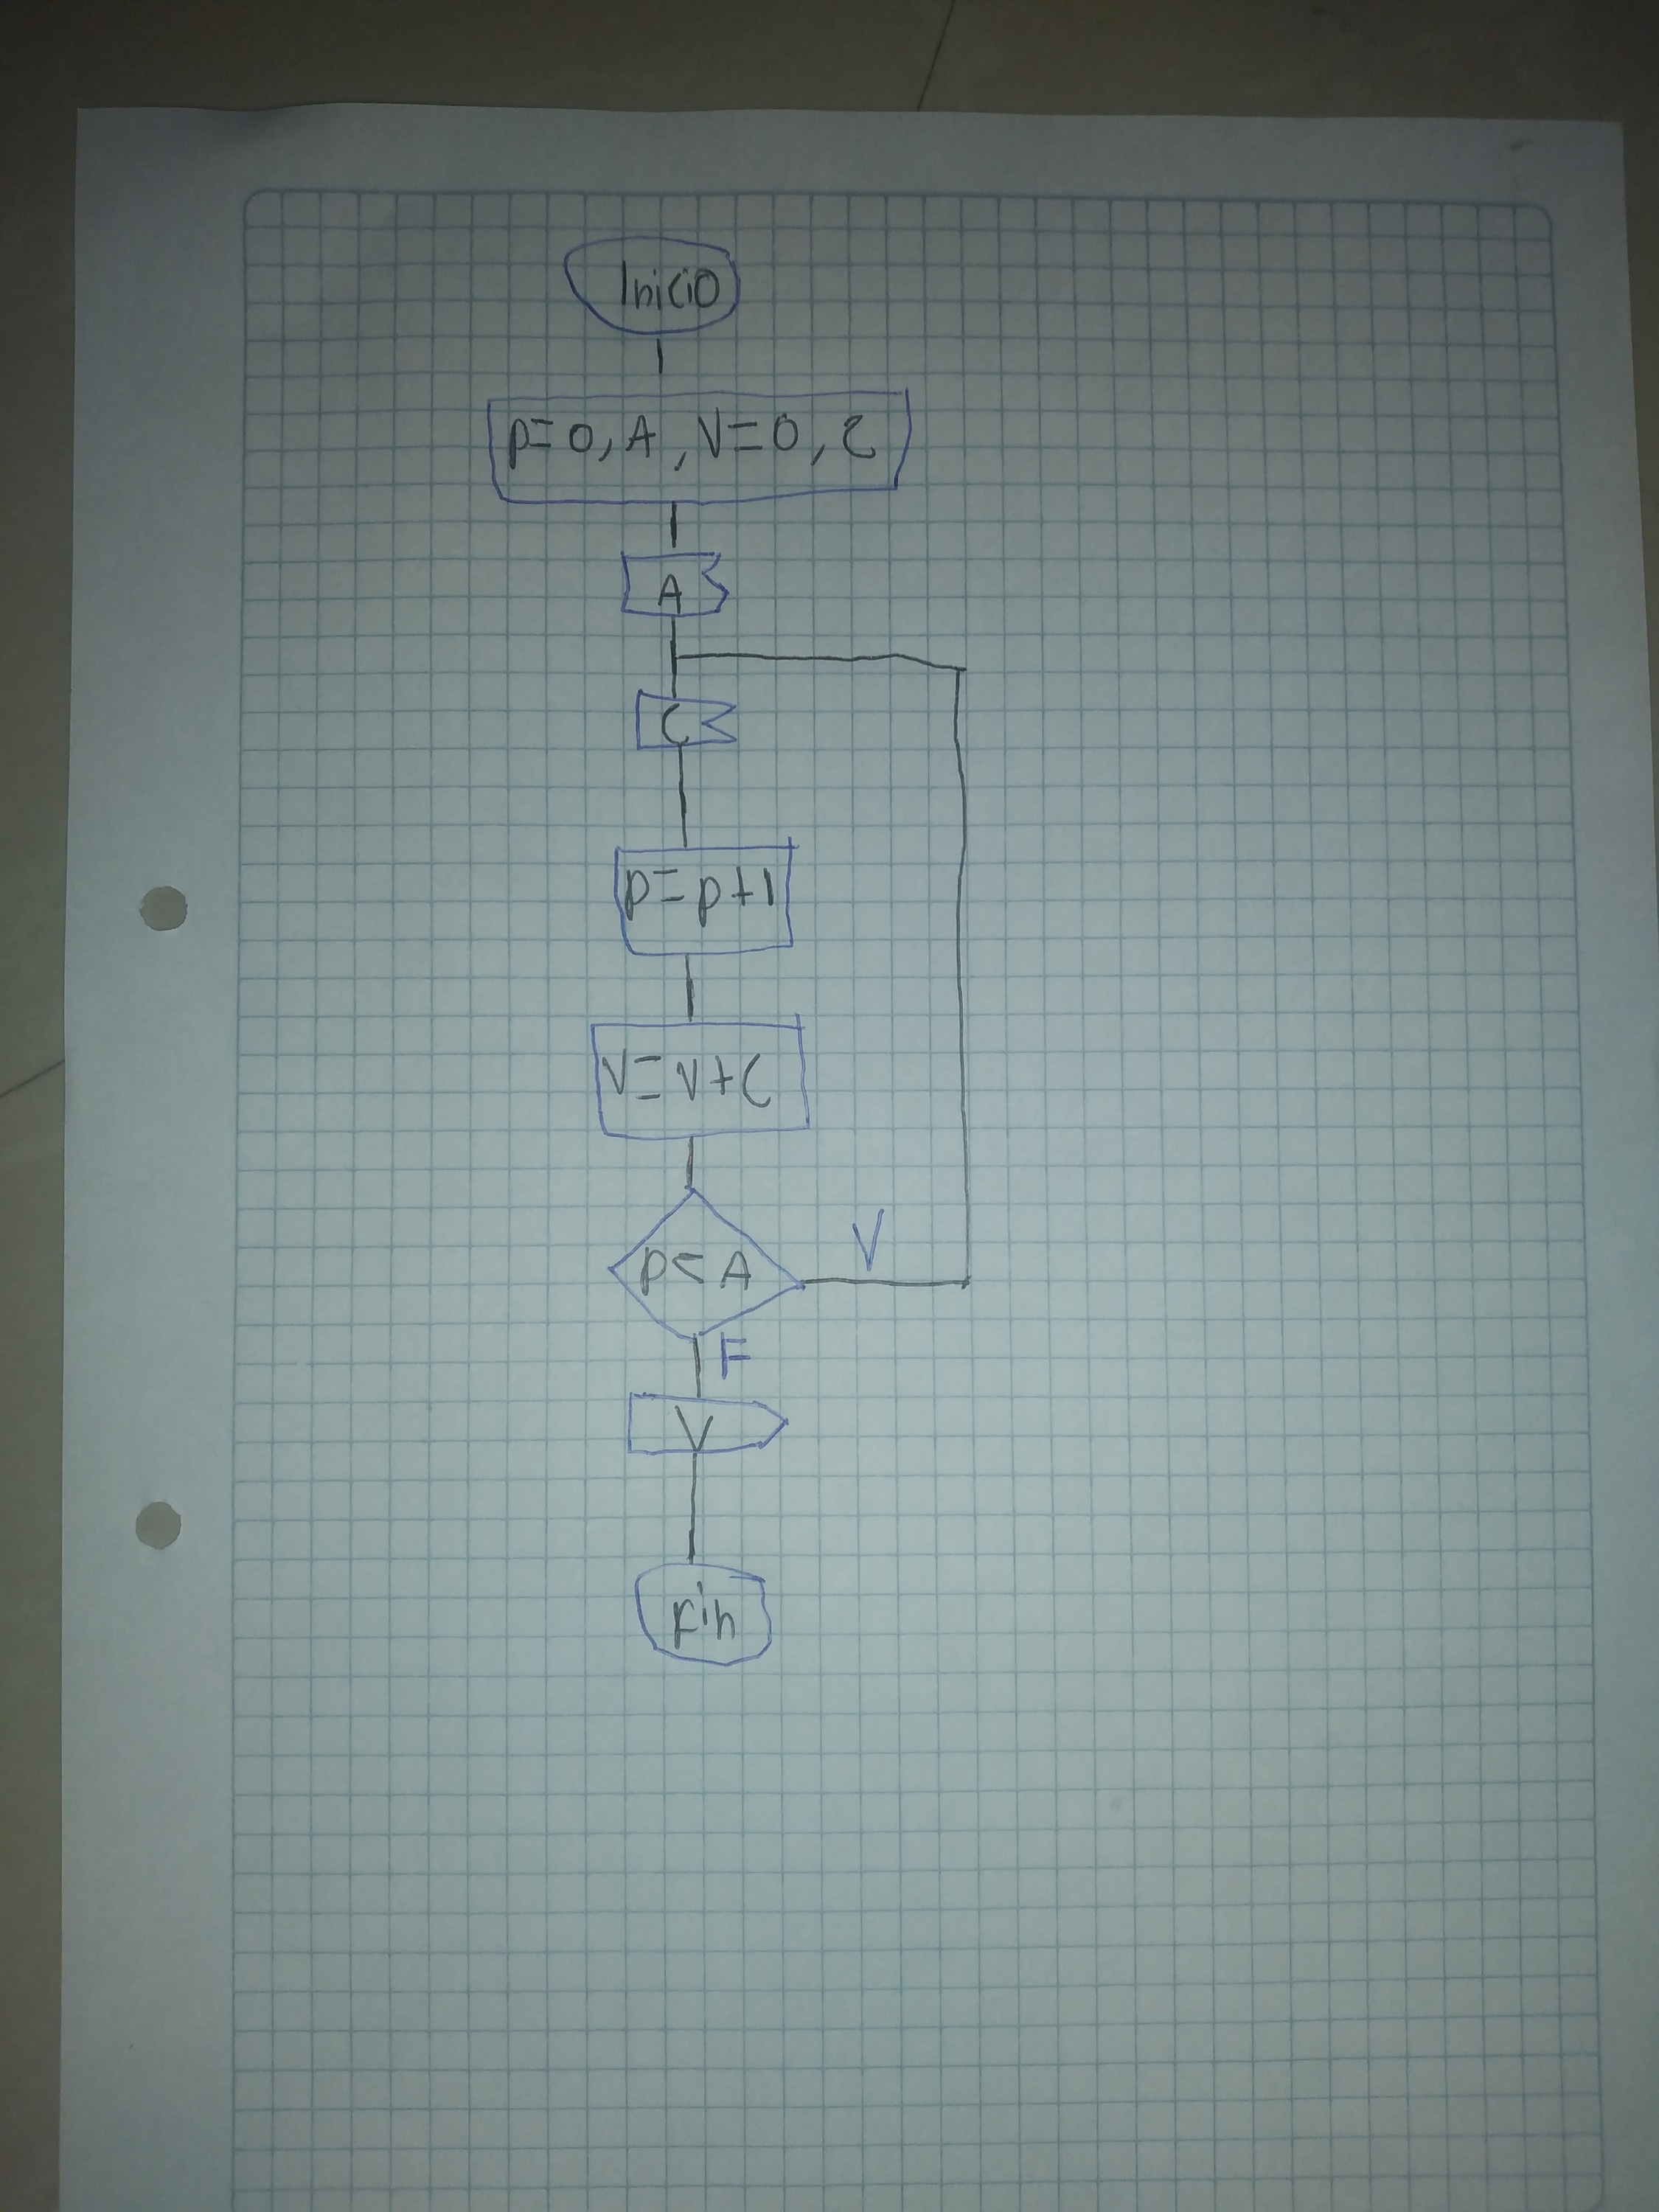 Inicio
p=0, A, V=0, C
A
C
p=p+1
V=V+C
p< A
V
F
V
Fin